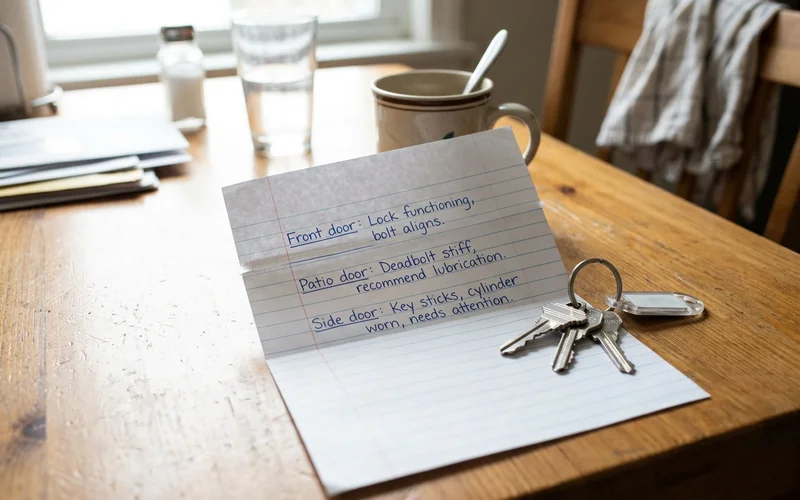 Front door: Lock functioning,
bolt aligns.
Patio door: Deadbolt stiff,
recommend lubrication.
Side door: Key sticks, cylinder
worn, needs attention.